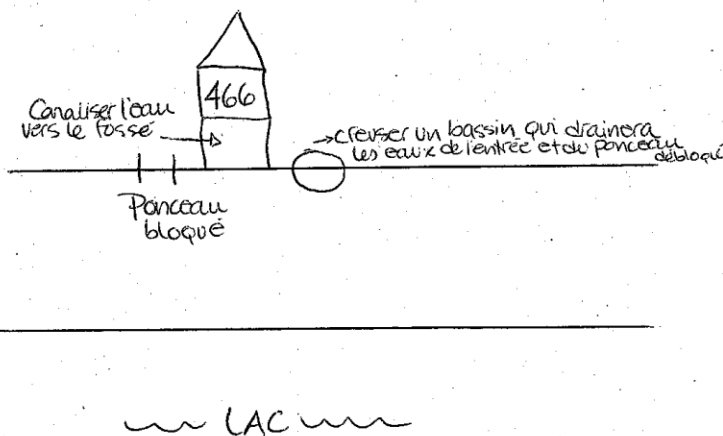 466
Canaliser l'eau
vers le fossé
→creuser un bassin qui drainera
les eaux de l'entrée et du ponceau
débloqué
Ponceau
bloqué
LAC